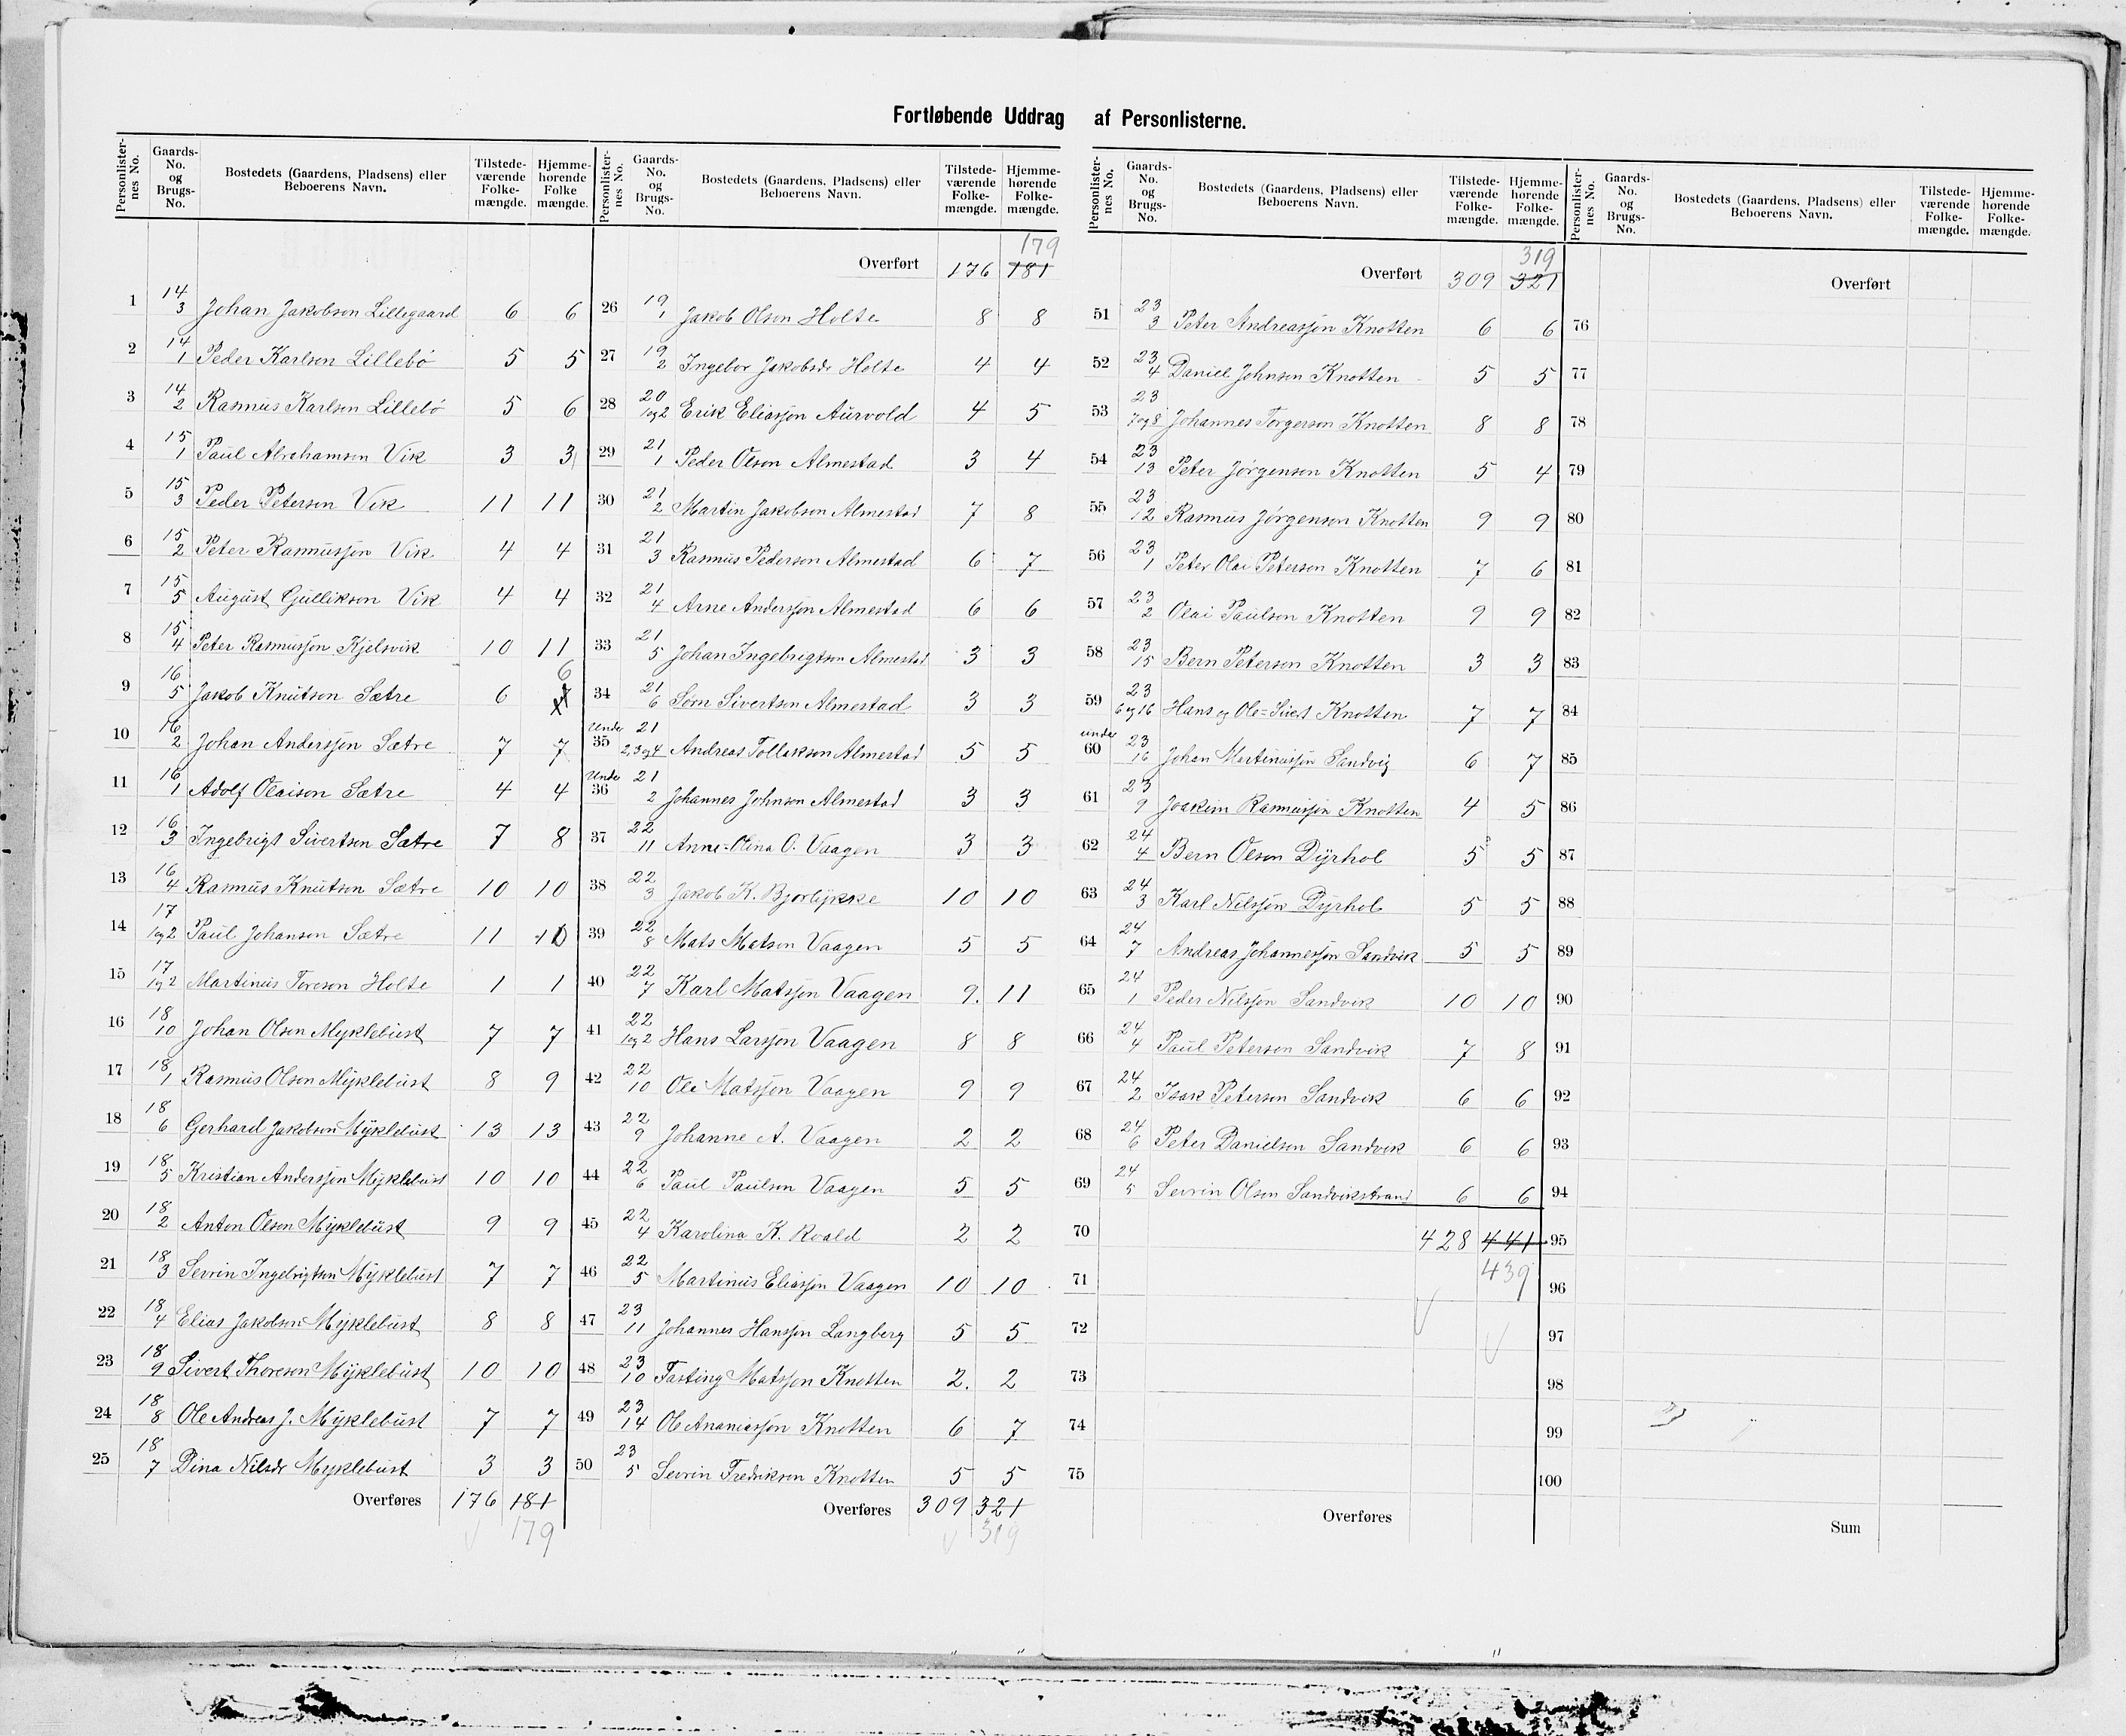 Fortløbende Uddrag af Personlisterne.
Personlisternes No. Gaards-No. og Brugs-No. Bostedets (Gaardens, Pladsens) eller Beboerens Navn. Tilstedeværende Folkemængde. Hjemmehørende Folkemængde.
1 14/3 Johan Jakobson Lillegaard 6 6
2 14/1 Peder Karlson Lillebö 5 5
3 14/2 Rasmus Karlson Lillebö 5 6
4 15/1 Paul Abrahamson Vik 3 3
5 15/3 Peder Peterson Vik 11 11
6 15/2 Peter Rasmussjøn Vik 4 4
7 15/5 August Gullikson Vik 4 4
8 15/4 Peter Rasmussjøn Kjelsvik 10 11
9 16/5 Jakob Knutson Sætre 6 6
10 16/2 Johan Anderssjøn Sætre 7 7
11 16/1 Adolf Olaison Sætre 4 4
12 16/3 Ingebrigt Sivertsen Sætre 7 8
13 16/4 Rasmus Knutson Sætre 10 10
14 17/1og2 Paul Johanson Sætre 11 10
15 17/1og2 Martinus Toreson Holte 1 1
16 18/10 Johan Olson Myklebust 7 7
17 18/1 Rasmus Olson Myklebust 8 9
18 18/6 Gerhard Jakobson Myklebust 13 13
19 18/5 Kristian Anderssjøn Myklebust 10 10
20 18/2 Anton Olson Myklebust 9 9
21 18/3 Sevrin Ingebrigtson Myklebust 7 7
22 18/4 Elias Jakobson Myklebust 8 8
23 18/9 Sivert Thoreson Myklebust 10 10
24 18/8 Ole Andreas J. Myklebust 7 7
25 18/7 Dina Nilsdr Myklebust 3 3
Overføres 176 181
179
Personlisternes No. Gaards-No. og Brugs-No. Bostedets (Gaardens, Pladsens) eller Beboerens Navn. Tilstedeværende Folkemængde. Hjemmehørende Folkemængde.
179
Overført 176 181
26 19/1 Jakob Olson Holte 8 8
27 19/2 Ingebor Jakobsdr Holte 4 4
28 20/1og2 Erik Eliassjøn Aurvold 4 5
29 21/1 Peder Olson Almestad 3 4
30 21/2 Martin Jakobson Almestad 7 8
31 21/3 Rasmus Pederson Almestad 6 7
32 21/4 Arne Anderssjøn Almestad 6 6
33 21/5 Johan Ingebrigtson Almestad 3 3
34 21/6 Sørn Sivertson Almestad 3 3
Under 35 21/2,3og4 Andreas Tollakson Almestad 5 5
Under 36 21/2 Johannes Johnson Almestad 3 3
37 22/11 Anne-Olina O. Vaagen 3 3
38 22/3 Jakob K. Bjorlykke 10 10
39 22/8 Mats Matson Vaagen 5 5
40 22/7 Karl Matssjøn Vaagen 9. 11
41 22/1og2 Hans Larssjøn Vaagen 8 8
42 22/10 Ole Matssjøn Vaagen 9 9
43 22/9 Johanne A. Vaagen 2 2
44 22/6 Paul Paulson Vaagen 5 5
45 22/4 Karolina K. Roald 2 2
46 22/5 Martinus Eliassjøn Vaagen 10 10
47 23/11 Johannes Hanssjøn Langberg 5 5
48 23/10 Tasting Matssjøn Knotten 2. 2
49 23/14 Ole Ananiassjøn Knotten 6 7
50 23/5 Sevrin Fredrikson Knotten 5 5
Overføres 309 321
319
Personlisternes No. Gaards-No. og Brugs-No. Bostedets (Gaardens, Pladsens) eller Beboerens Navn. Tilstedeværende Folkemængde. Hjemmehørende Folkemængde.
319
Overført 309 321
51 23/3 Peter Andreassjøn Knotten 6 6
52 23/4 Daniel Johnson Knotten 5 5
53 23/7og8 Johannes Torgerson Knotten 8 8
54 23/13 Peter Jörgenson Knotten 5 4
55 23/12 Rasmus Jörgenson Knotten 9 9
56 23/1 Peter Olai Peterson Knotten 7 6
57 23/2 Olai Paulson Knotten 9 9
58 23/15 Bern Peterson Knotten 3 3
59 23/6og16 Hans og Ole=Sivert Knotten 7 7
under 60 23/16 Johan Martinussjøn Sandvig 6 7
61 23/9 Joakim Rasmussjøn Knotten 4 5
62 24/4 Bern Olson Dyrhol 5 5
63 24/3 Karl Nilssjøn Dyrhol 5 5
64 24/7 Andreas Johannessjøn Sandvik 5 5
65 24/1 Peder Nilssjøn Sandvik 10 10
66 24/4 Paul Peterson Sandvik 7 8
67 24/2 Isak Peterson Sandvik 6 6
68 24/6 Peter Danielson Sandvik 6 6
69 24/5 Sevrin Olson Sandvikstrand 6 6
70 428 441
71 439
72
73
74
75
Overføres
Personlisternes No. Gaards-No. og Brugs-No. Bostedets (Gaardens, Pladsens) eller Beboerens Navn. Tilstedeværende Folkemængde. Hjemmehørende Folkemængde.
Overført
76
77
78
79
80
81
82
83
84
85
86
87
88
89
90
91
92
93
94
95
96
97
98
99
100
Sum